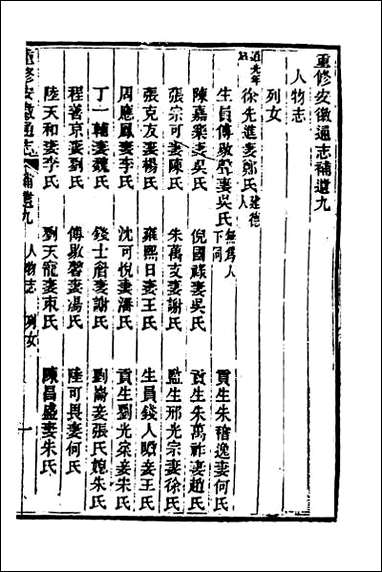 重修安徽通志補遺九
人物志
列女
道光年
徐先進妻鄭氏 建德人
生員傅敭聲妻吳氏 無為人下同 貢生朱稽逸妻何氏
陳嘉樂妻吳氏 倪國祿妻吳氏 貢生朱萬祚妻趙氏
張宗可妻陳氏 朱萬支妻謝氏 監生邢光宗妻徐氏
張克友妻楊氏 雍熙日妻王氏 生員錢人贍妻王氏
周應鳳妻李氏 沈可悅妻潘氏 貢生劉光榮妻朱氏
丁一輔妻魏氏 錢士裔妻謝氏 劉崙妻張氏媳朱氏
程善京妻劉氏 傅敭馨妻湯氏 陸可畏妻何氏
陸天和妻李氏 劉天龍妻束氏 陳昌盛妻朱氏
重修安徽通志 補遺九 人物志 列女 一